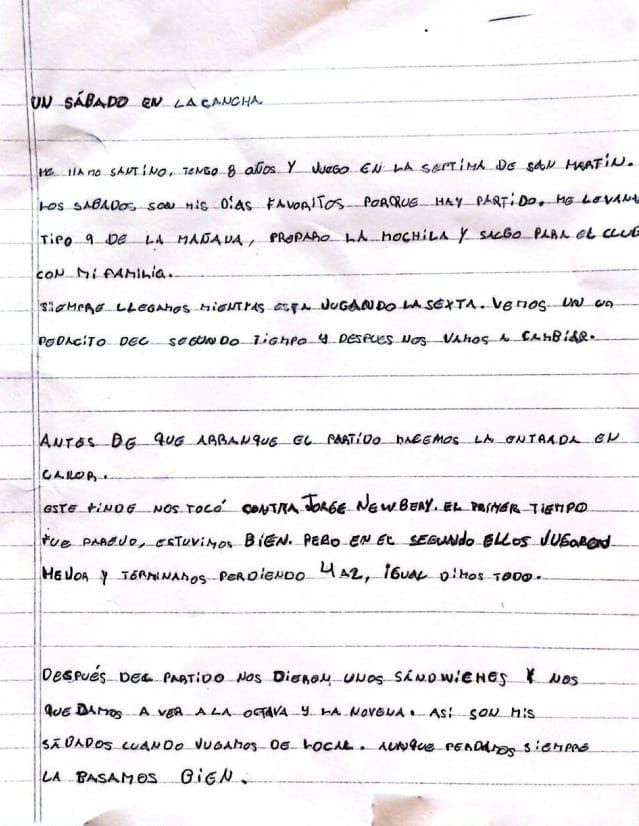 UN SÁBADO EN LA CANCHA
ME LLAMO SANTINO, TENGO 8 AÑOS Y JUEGO EN LA SEPTIMA DE SAN MARTÍN.
LOS SABADOS SON MIS DÍAS FAVORITOS PORQUE HAY PARTIDO. ME LEVAN
TIPO 9 DE LA MAÑANA, PREPARO LA MOCHILA Y SALGO PARA EL CLUB
CON MI FAMILIA.
SIEMPRE LLEGAMOS MIENTRAS ESTA JUGANDO LA SEXTA. VEMOS UN
PEDACITO DEL SEGUNDO TIEMPO Y DESPUES NOS VAMOS A CAMBIAR.
ANTES DE QUE ARRANQUE EL PARTIDO HACEMOS LA ENTRADA EN
CALOR.
ESTE FINDE NOS TOCÓ CONTRA JORGE NEWBERY. EL PRIMER TIEMPO
FUE PAREJO, ESTUVIMOS BIEN. PERO EN EL SEGUNDO ELLOS JUGARON
MEJOR Y TERMINAMOS PERDIENDO 4 A 2, IGUAL DIMOS TODO.
DESPUÉS DEL PARTIDO NOS DIERON UNOS SÁNDWICHES Y NOS
QUEDAMOS A VER A LA OCTAVA Y LA NOVENA. ASÍ SON MIS
SÁBADOS CUANDO JUGAMOS DE LOCAL. AUNQUE PERDAMOS SIEMPRE
LA PASAMOS BIEN.